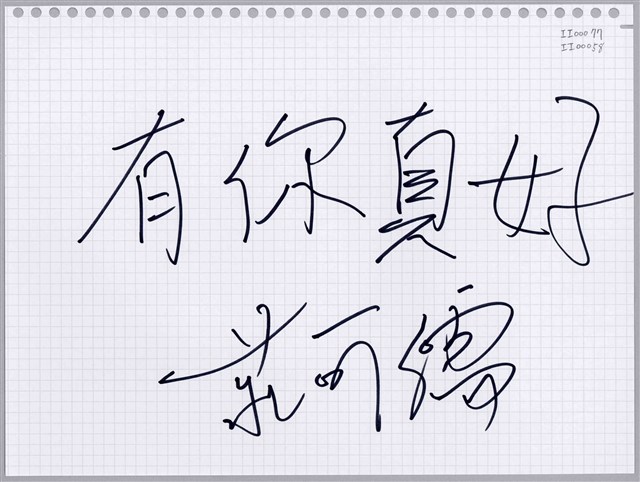 II00077
II00058
有你真好
莊可儒